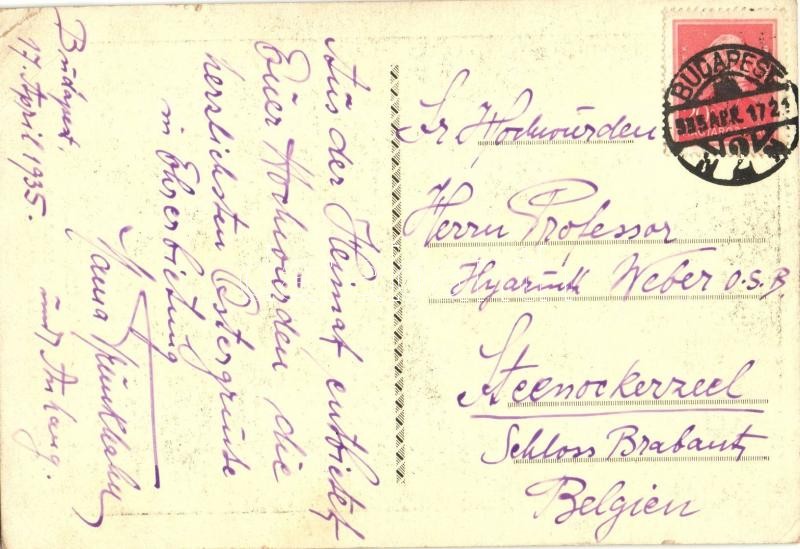 Budapest.
17. April 1935.
Aus der Heimat entbietet
Euer Hochwürden die
herzlichsten Ostergrüsse
in Ehrerbietung
und Anhang.
BUDAPEST
935 APR. 17 21
Sr Hochwürden
Herrn Professor
Hyazinth Weber O.S.B.
Steenockerzeel
Schloss Brabant
Belgien